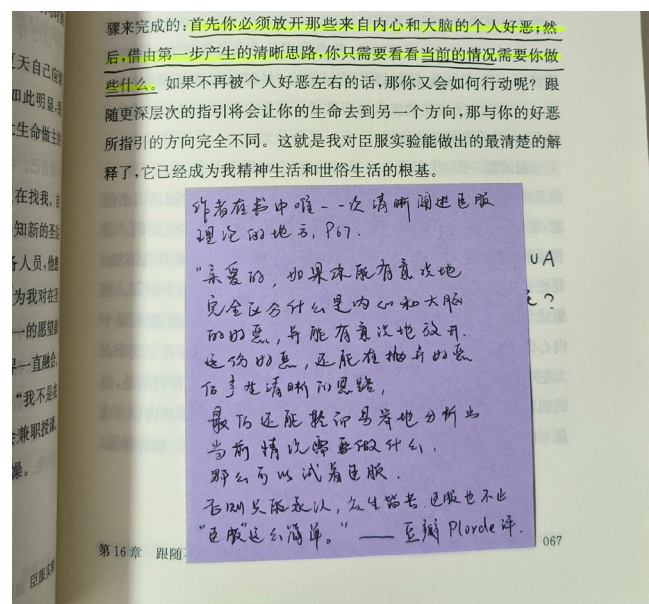 骤来完成的：首先你必须放开那些来自内心和大脑的个人好恶；然
后，借由第一步产生的清晰思路，你只需要看看当前的情况需要你做
些什么。如果不再被个人好恶左右的话，那你又会如何行动呢？跟
随更深层次的指引将会让你的生命去到另一个方向，那与你的好恶
所指引的方向完全不同。这就是我对臣服实验能做出的最清楚的解
释了，它已经成为我精神生活和世俗生活的根基。
作者在书中唯一一次清晰阐述臣服
理论的地方，P67.
“亲爱的，如果你能有意识地
完全区分什么是内心和大脑
的好恶，并能有意识地放开
这份好恶，还能在抛弃好恶
后产生清晰的思路，
最后还能轻而易举地分析出
当前情况需要做什么，
那么可以试着臣服.
否则只能承认，众生皆苦，臣服也不止
“臣服”这么简单。” —— 豆瓣 Plorde 评.
UA
？
第16章 跟随
067
天自己应
如此明显，我
生命做主的
在找我，自
知新的圣
各人员，他想
为我对在圣
一的愿望
界一直融合
“我不是在
会兼职授课
操。
臣服实